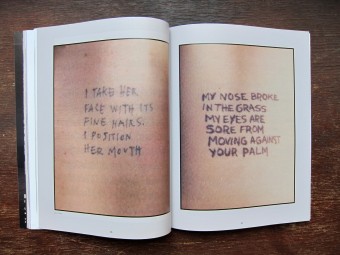 I TAKE HER
FACE WITH ITS
FINE HAIRS.
I POSITION
HER MOUTH
MY NOSE BROKE
IN THE GRASS
MY EYES ARE
SORE FROM
MOVING AGAINST
YOUR PALM